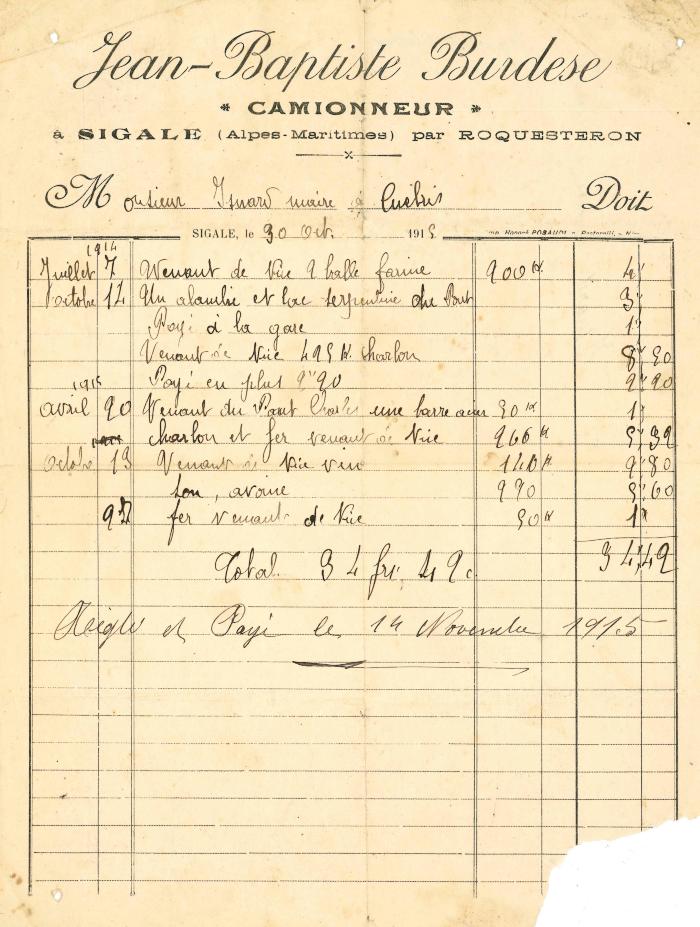 Jean-Baptiste Burdese
* CAMIONNEUR *
à SIGALE (Alpes-Maritimes) par ROQUESTERON
Monsieur Isnard maire à Cuebris Doit
SIGALE, le 30 Oct. 1915
1914
Juillet 7 Venant de Nice 2 balle farine 200 K 4"
Octobre 12 Un alambic et bac serpentine du Pont 3"
Payé à la gare 1"
Venant de Nice 495 K. charbon 8" 50
1915 Payé en plus 2" 20
avril 20 Venant du Pont Charles une barre acier 50 K 1"
charbon et fer venant de Nice 266 K 5" 32
Octobre 13 Venant de Nice vin 140 K 2" 80
son, avoine 5" 60
27 fer venant de Nice 50 K 1"
Total 34 frs. 42 c. 34,42
Réglé et Payé le 14 Novembre 1915